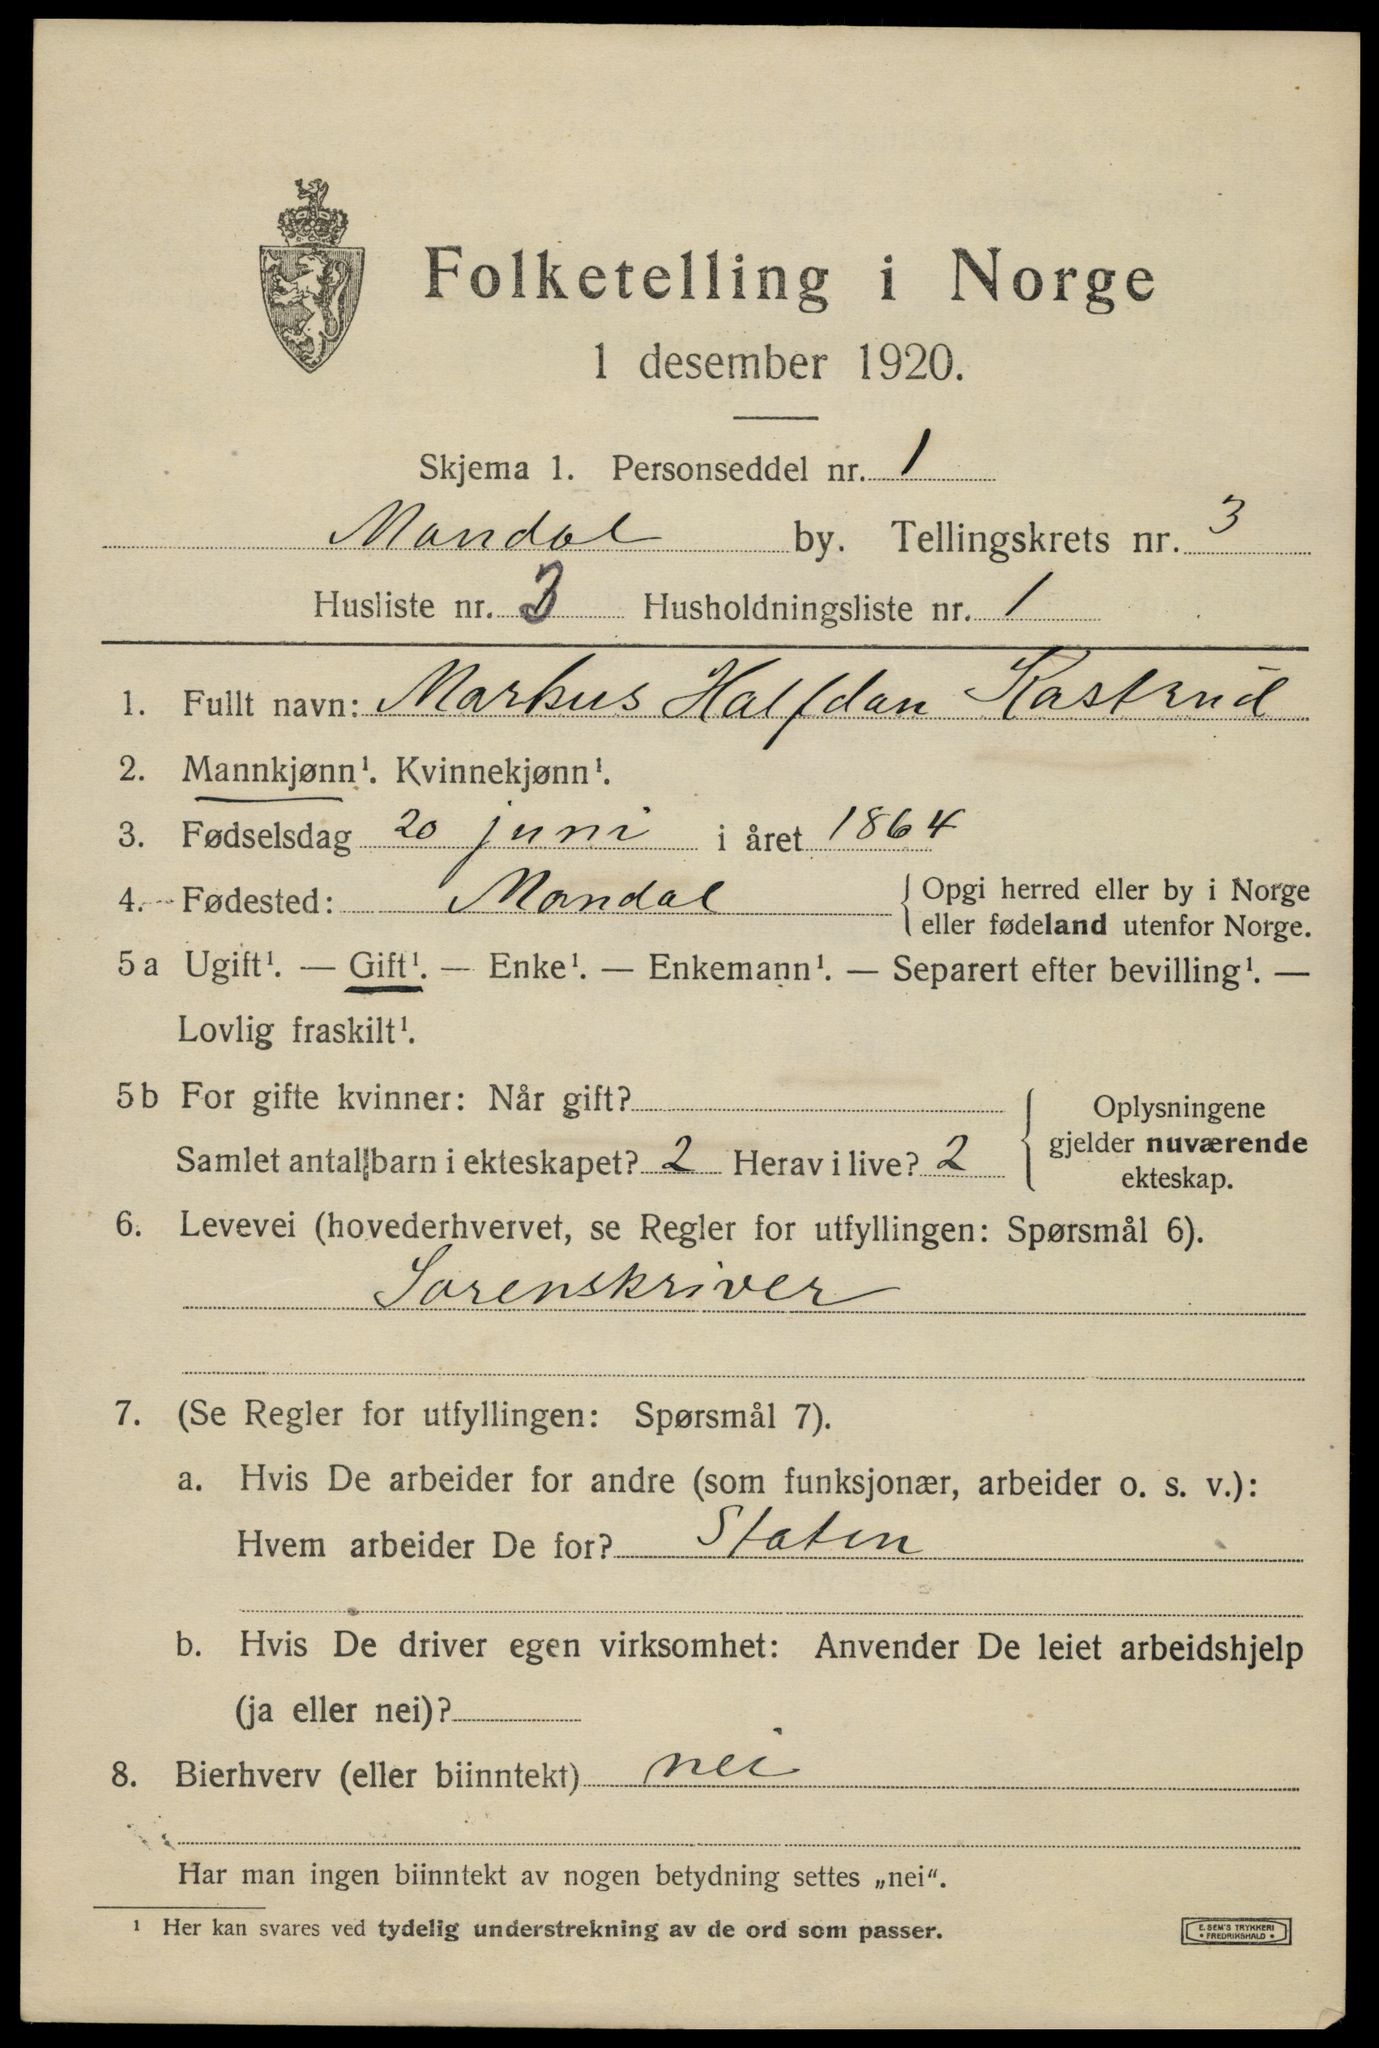 Folketelling i Norge
1 desember 1920.
Skjema 1. Personseddel nr. 1
Mandal by. Tellingskrets nr. 3
Husliste nr. 3 Husholdningsliste nr. 1
1. Fullt navn: Markus Halfdan Kastrud
2. Mannkjønn¹. Kvinnekjønn¹.
3. Fødselsdag 20 juni i året 1864
4. Fødested: Mandal
Opgi herred eller by i Norge
eller fødeland utenfor Norge.
5a Ugift¹. — Gift¹. — Enke¹. — Enkemann¹. — Separert efter bevilling¹. —
Lovlig fraskilt¹.
5b For gifte kvinner: Når gift?
Samlet antall barn i ekteskapet? 2 Herav i live? 2
Oplysningene
gjelder nuværende
ekteskap.
6. Levevei (hovederhvervet, se Regler for utfyllingen: Spørsmål 6).
Sorenskriver
7. (Se Regler for utfyllingen: Spørsmål 7).
a. Hvis De arbeider for andre (som funksjonær, arbeider o. s. v.):
Hvem arbeider De for? Staten
b. Hvis De driver egen virksomhet: Anvender De leiet arbeidshjelp
(ja eller nei)?
8. Bierhverv (eller biinntekt) nei
Har man ingen biinntekt av nogen betydning settes „nei“.
¹ Her kan svares ved tydelig understrekning av de ord som passer.
E. SEM'S TRYKKERI
• FREDRIKSHALD •